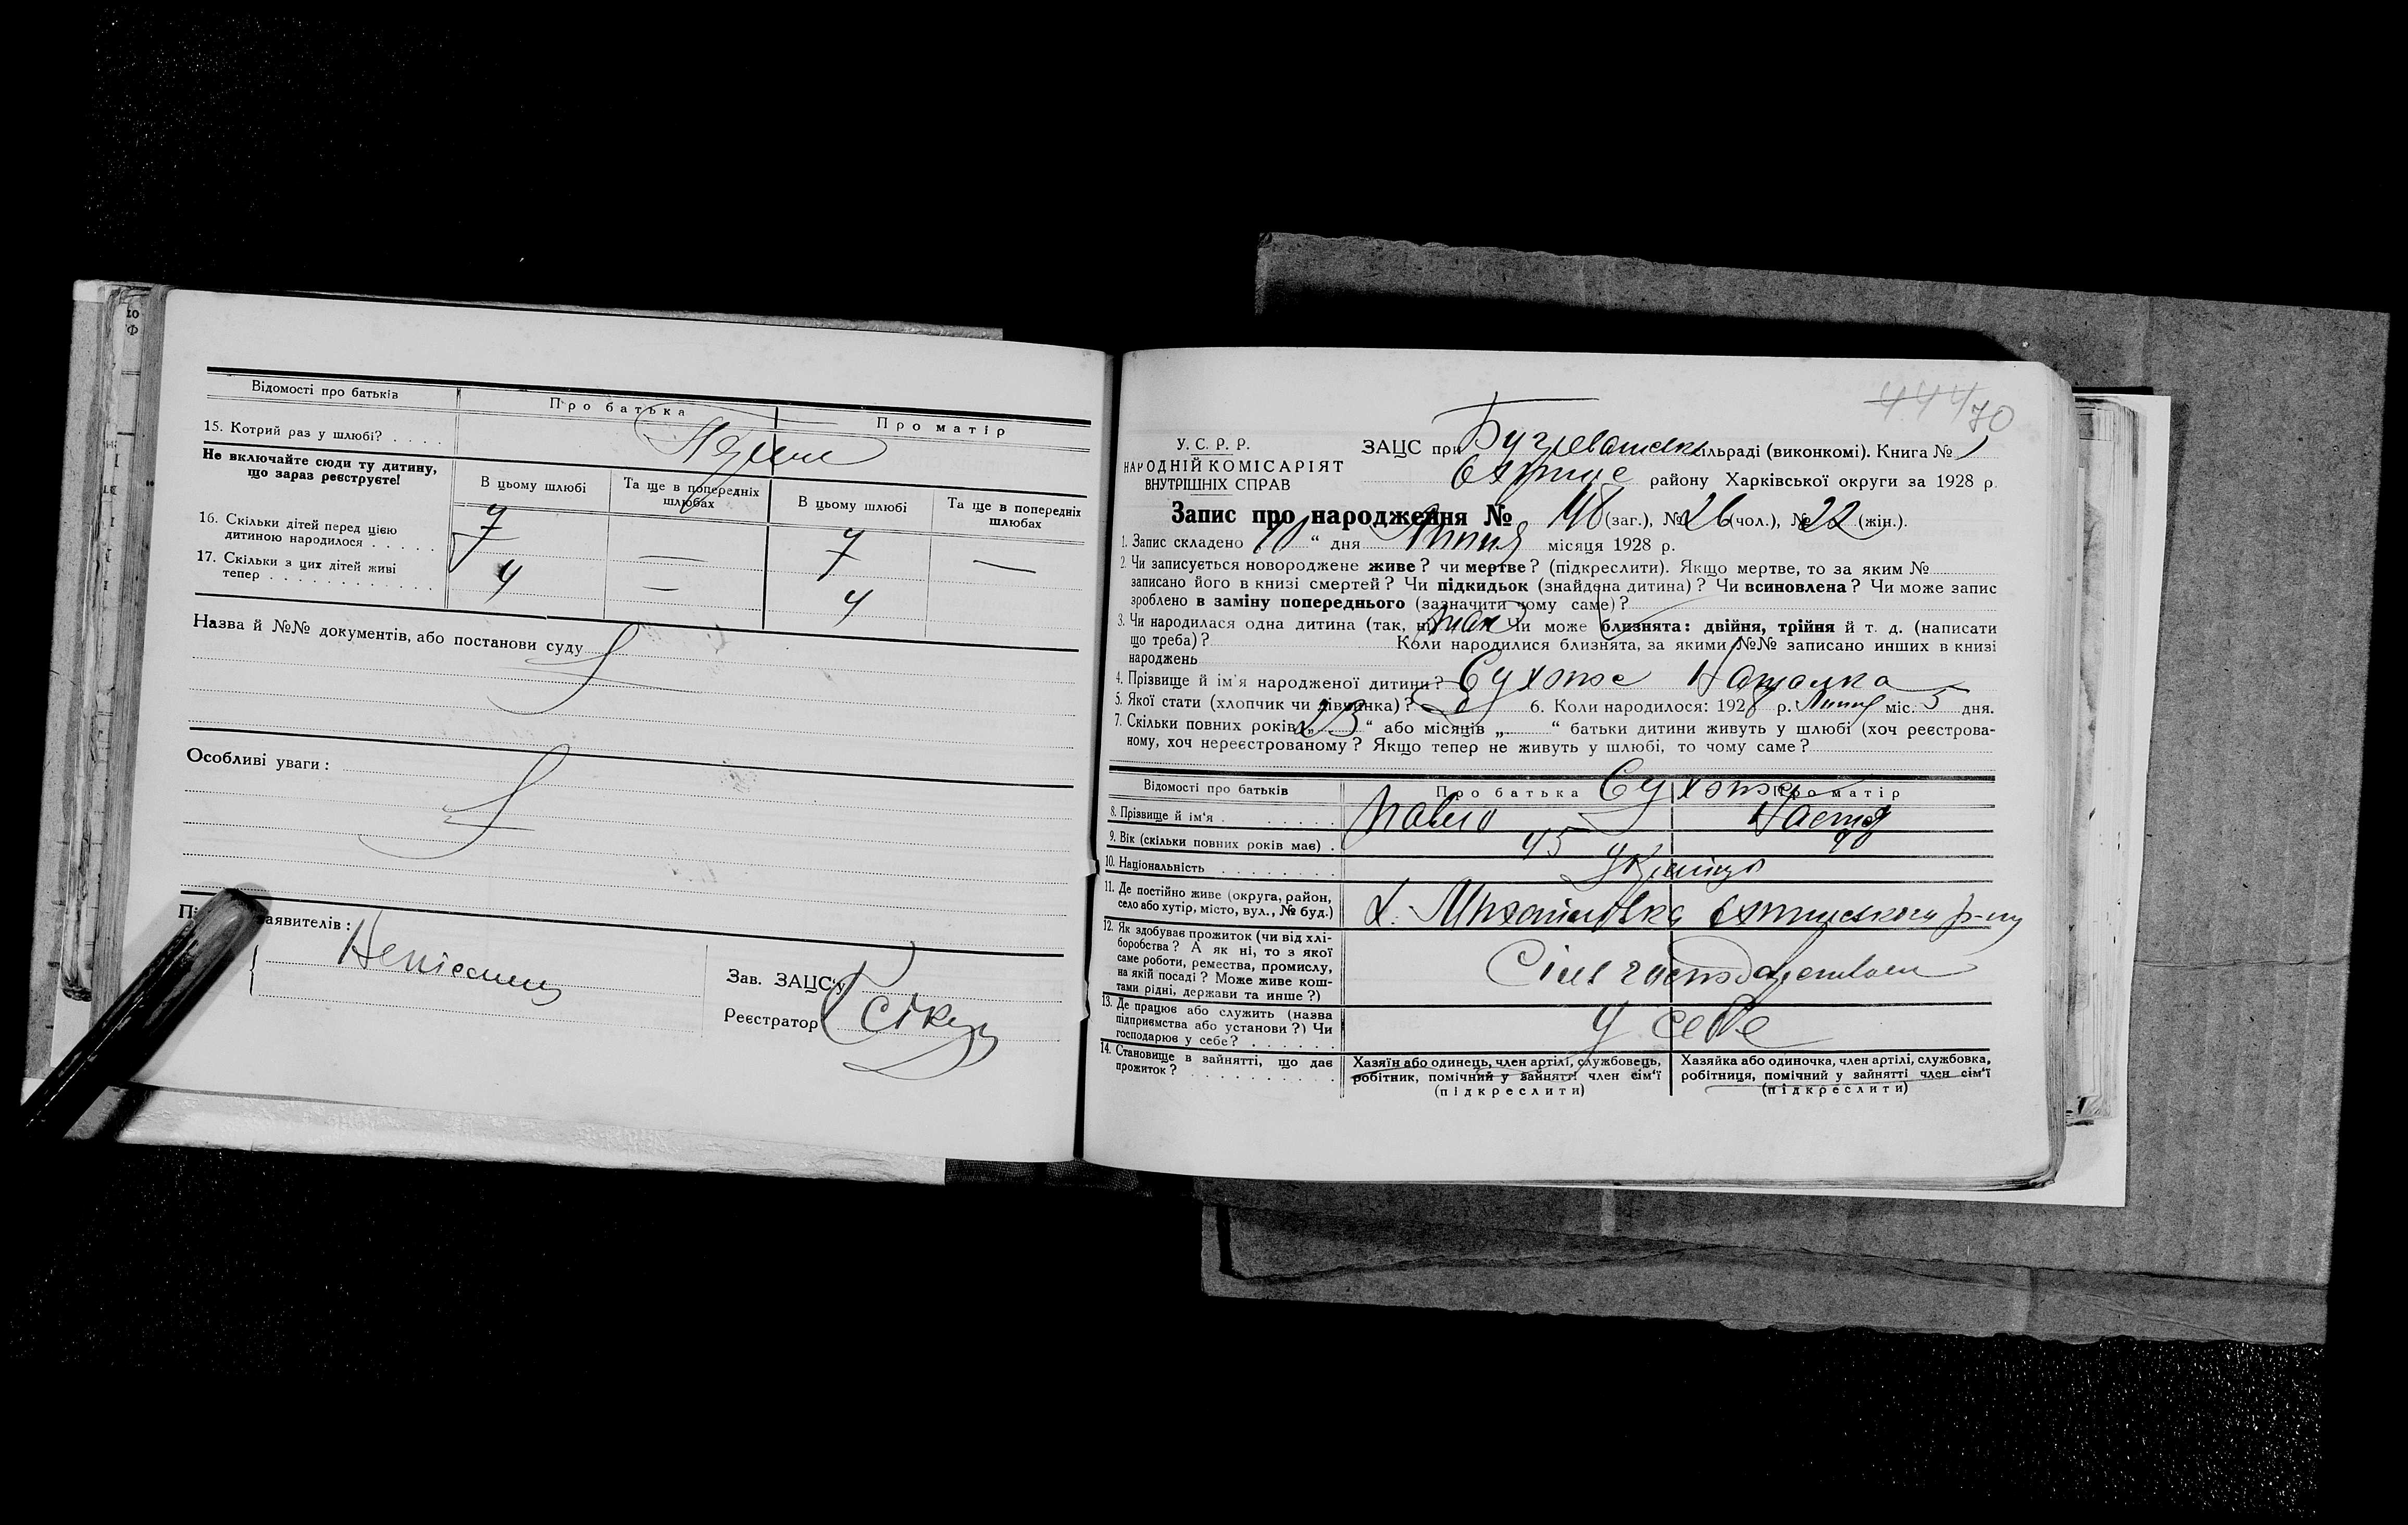 Відомості про батьків
Про батька
Про матір
15. Котрий раз у шлюбі? . . . .
Не включайте сюди ту дитину,
що зараз реєструєте!
В цьому шлюбі
Та ще в попередніх
шлюбах
В цьому шлюбі
Та ще в попередніх
шлюбах
16. Скільки дітей перед цією
дитиною народилося . . . . .
7 — 7 —
17. Скільки з цих дітей живі
тепер . . . . . . . . . . . .
4 — 4
Назва й №№ документів, або постанови суду
Особливі уваги:
аявителів:
Неписьмен
Зав. ЗАЦС'у
Реєстратор
444 70
У. С. Р. Р.
НАРОДНІЙ КОМІСАРІЯТ
ВНУТРІШНІХ СПРАВ
ЗАЦС при сільраді (виконкомі). Книга № 1
району Харківської округи за 1928 р.
Запис про народження № 48 (заг.), № 26 (чол.), № 22 (жін.).
1. Запис складено „10“ дня Липня місяця 1928 р.
2. Чи записується новороджене живе? чи мертве? (підкреслити). Якщо мертве, то за яким №
записано його в книзі смертей? Чи підкидьок (знайдена дитина)? Чи всиновлена? Чи може запис
зроблено в заміну попереднього (зазначити чому саме)?
3. Чи народилася одна дитина (так, ні) так Чи може близнята: двійня, трійня й т. д. (написати
що треба)? Коли народилися близнята, за якими №№ записано инших в книзі
народжень
4. Прізвище й ім'я народженої дитини? Сухонос Наталка
5. Якої стати (хлопчик чи дівчинка)? 6. Коли народилося: 1928 р. Липня міс. 5 дня.
7. Скільки повних років „23“ або місяців „ “ батьки дитини живуть у шлюбі (хоч реєстрова-
ному, хоч нереєстрованому? Якщо тепер не живуть у шлюбі, то чому саме?
Відомості про батьків
Про батька
Про матір
Сухонос
8. Прізвище й ім'я . . . . . .
Павло
Настя
9. Вік (скільки повних років має) .
45
10. Національність . . . . . . . . .
11. Де постійно живе (округа, район,
село або хутір, місто, вул., № буд.)
х. Михайлівка Охтирського р-ну
12. Як здобуває прожиток (чи від хлі-
боробства? А як ні, то з якої
саме роботи, ремества, промислу,
на якій посаді? Може живе кош-
тами рідні, держави та инше?)
Сільс господарством
13. Де працює або служить (назва
підприємства або установи?) Чи
господарює у себе? . . . . . .
У себе
14. Становище в зайнятті, що дає
прожиток? . . . . . . . . . . .
Хазяїн або одинець, член артілі, службовець,
робітник, помічний у зайнятті член сім'ї
(підкреслити)
Хазяйка або одиночка, член артілі, службовка,
робітниця, помічний у зайнятті член сім'ї
(підкреслити)